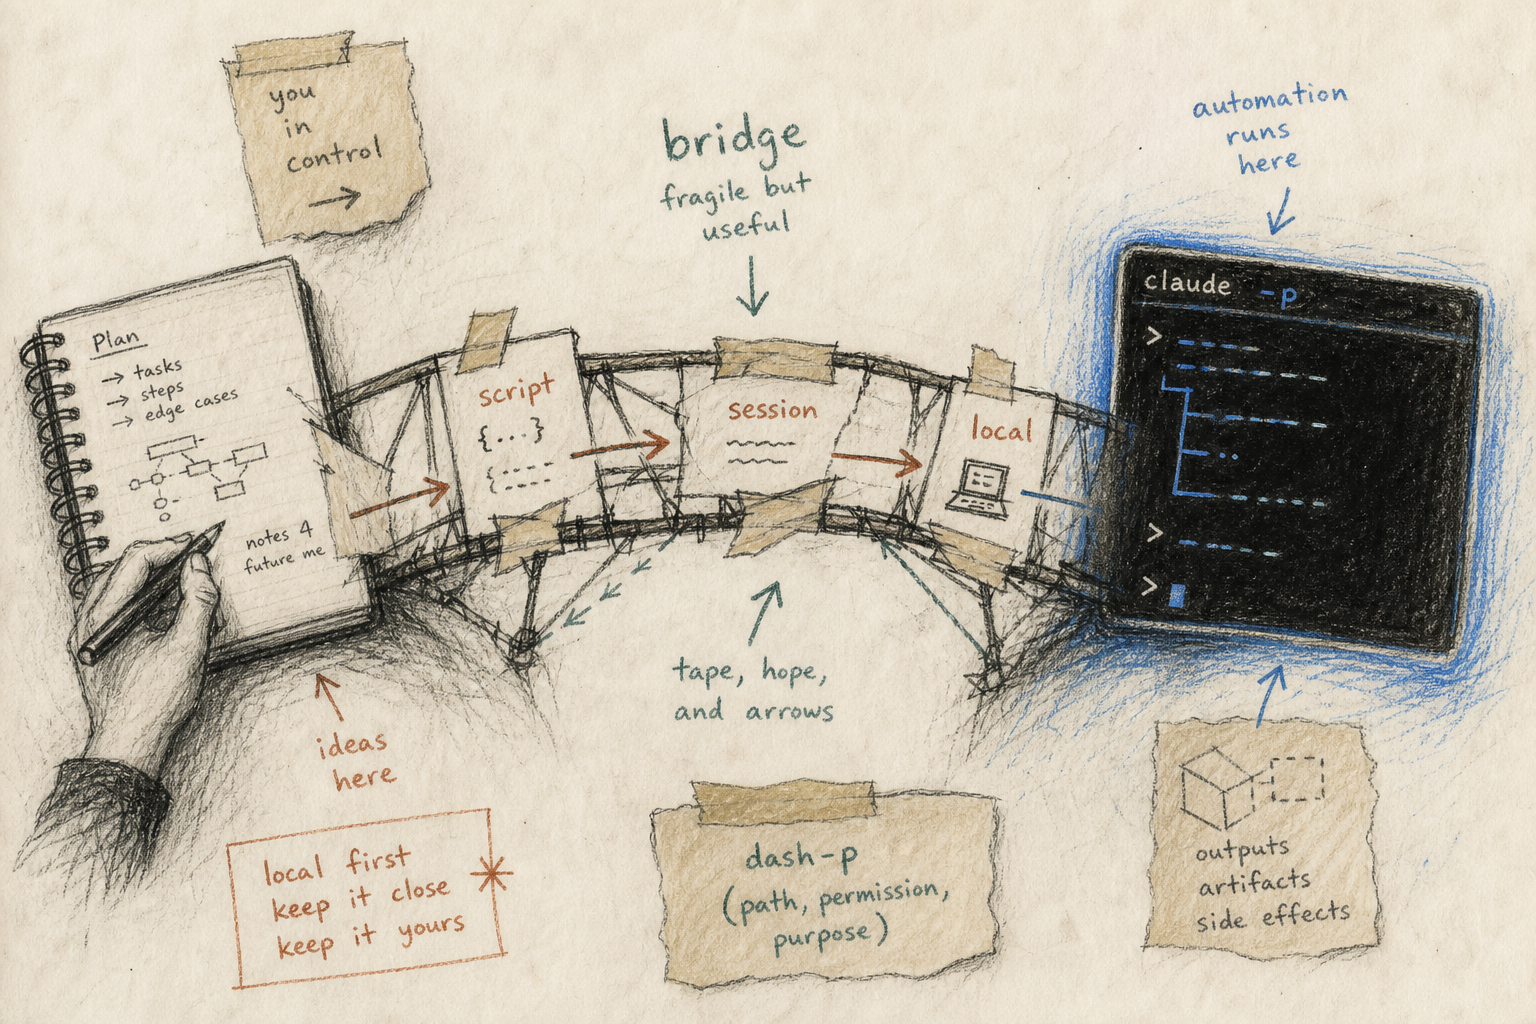 you
in
control
→
bridge
fragile but
useful
automation
runs
here
Plan
→ tasks
→ steps
→ edge cases
notes 4
future me
script
{...}
session
local
claude -p
>
>
>
tape, hope,
and arrows
ideas
here
local first
keep it close
keep it yours
dash-p
(path, permission,
purpose)
outputs
artifacts
side effects